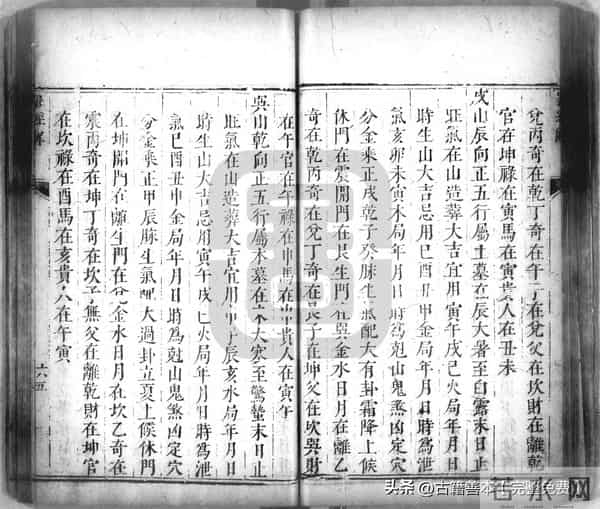 兌丙奇在乾丁奇在午子在兌父在坎財在離乾
官在坤祿在寅馬在寅貴人在丑未
戌山辰向正五行屬土墓在辰大暑至白露末日止
旺氣在山造葬大吉宜用寅午戌火局年月日
時生山大吉忌用巳酉丑申金局年月日時爲泄
氣亥卯未寅木局年月日時爲尅山鬼煞凶定穴
分金乘正戌乾子癸脉生氣配大有卦霜降上候
休門在震開門在艮生門在巽金水日月在離乙
奇在乾丙奇在兌丁奇在艮子在坤父在坎巽財
在午官在午祿在申馬在申貴人在寅午
巽山乾向正五行屬木墓在未大寒至驚蟄末日止
旺氣在山造葬大吉宜用申子辰亥水局年月日
時生山大吉忌用寅午戌巳火局年月日時爲泄
氣巳酉丑申金局年月日時爲尅山鬼煞凶定穴
分金乘正甲辰脉生氣配大過卦立夏上候休門
在坤開門在離生門在兌金水日月在坎乙奇在
震丙奇在坤丁奇在坎子無父在離乾財在坤官
在坎祿在酉馬在亥貴人在午寅
六五
头条 @古籍善本
完整免费